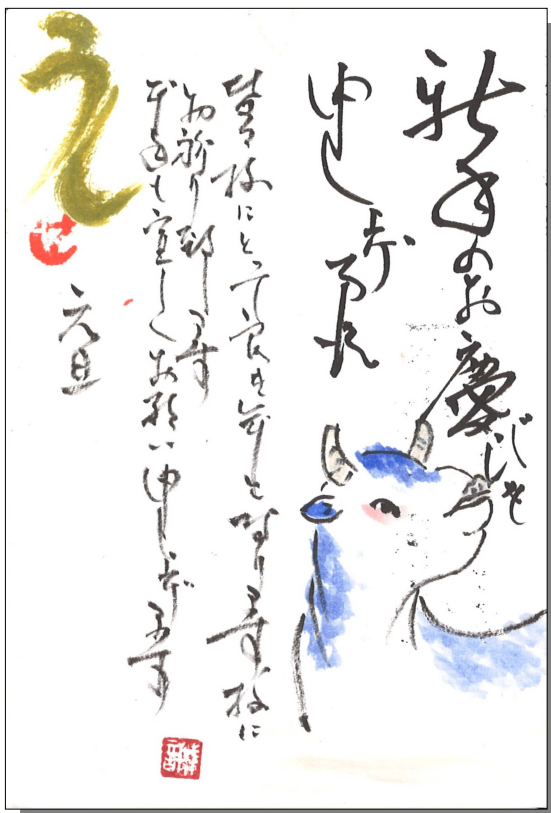 新年のお慶びを
申し上げます
皆々様にとって良き年となります様に
お祈り致します
本年も宜しくお願い申し上げます
元旦
うし